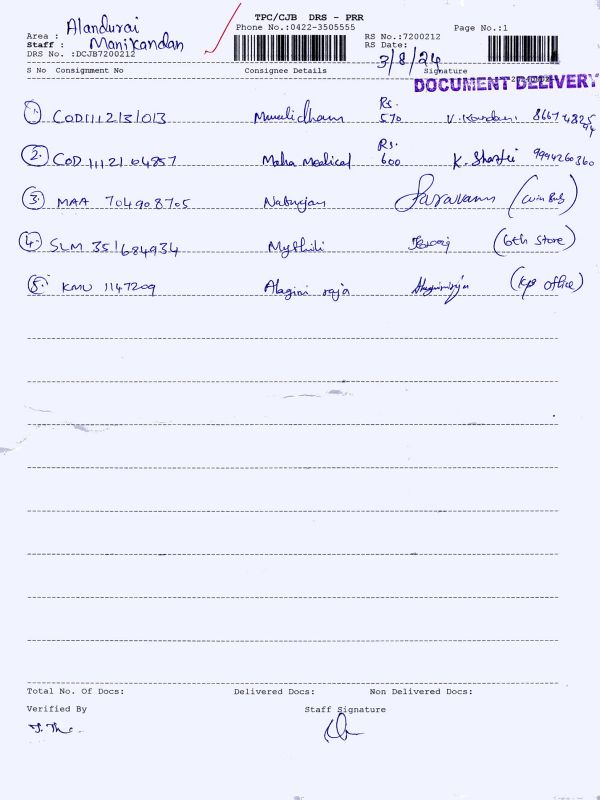 TPC/CJB DRS - PRR
Area : Alandurai
Phone No.:0422-3505555
Page No.:1
Staff : Manikandan
RS No.:7200212
DRS No. :DCJB7200212
RS Date: 3/8/24
S No Consignment No Consignee Details Signature
DOCUMENT DELIVERY
1. COD1112131013 Muralidharan Rs. 570
2. COD 11121 04857 Maha Medical Rs. 600 K. 9994260360
3. MAA 704908705 Saravanan
4. SLM 351684934 Mythili (6th Store)
5. KMU 1147209 Alagiri raja (KP office)
Total No. Of Docs: Delivered Docs: Non Delivered Docs:
Verified By Staff Signature